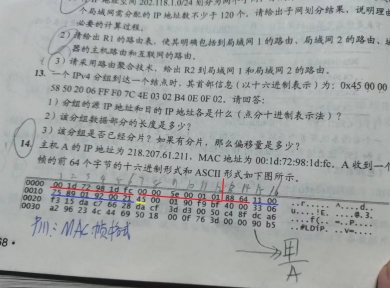 个局域网需分配的 IP 地址数不少于 120 个. 请给出子网划分结果, 说明理由
必要的计算过程.
2) 请给出 R1 的路由表, 使其明确包括到局域网 1 的路由、局域网 2 的路由、
器的主机路由和互联网的路由.
3) 请采用路由聚合技术, 给出 R2 到局域网 1 和局域网 2 的路由.
13. 一个 IPv4 分组到达一个结点时, 其首部信息(以十六进制表示)为: 0x45 00 00
58 50 20 06 FF F0 7C 4E 03 02 B4 0E 0F 02. 请回答:
1) 分组的源 IP 地址和目的 IP 地址各是什么(点分十进制表示法)?
2) 该分组数据部分的长度是多少?
3) 该分组是否已经分片? 如果有分片, 那么偏移量是多少?
14. 主机 A 的 IP 地址为 218.207.61.211, MAC 地址为 00:1d:72:98:1d:fc. A 收到一个
帧的前 64 个字节的十六进制形式和 ASCII 形式如下图所示.
0000 00 1d 72 98 1d fc 00 00 5e 00 01 01 88 64 11 00
0010 75 89 01 92 00 21 45 00 01 90 f9 bf 40 00 33 06
0020 f3 15 da c7 66 28 da cf 3d d3 00 50 c4 8f dc a6
0030 a2 96 23 4c 44 69 50 18 00 0f 76 3d 00 00 90 b5
MAC 帧格式
A
68